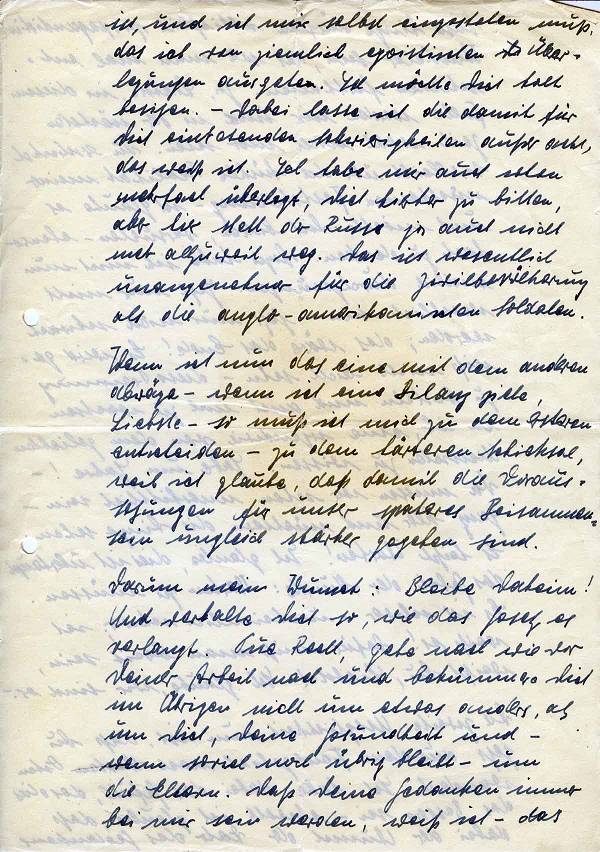 ist, und ich mir selbst eingestehen muß,
das ich von ziemlich egoistischen Über-
legungen ausgehen. Ich möchte Dich halt
besitzen. – Dabei lasse ich die damit für
Dich eintretenden Schwierigkeiten außer acht,
das weiß ich. Ich habe mir auch schon
mehrfach überlegt, Dich hierher zu bitten,
aber hier steht der Russe ja auch nicht
mehr allzuweit weg. Das ist wesentlich
unangenehmer für die Zivilbevölkerung
als die anglo-amerikanischen Soldaten.
Wenn ich nun das eine mit dem anderen
abwäge – wenn ich eine Bilanz ziehe,
Liebste – so muß ich mich zu dem ersteren
entscheiden – zu dem härteren Schicksal,
weil ich glaube, daß damit die Voraus-
setzungen für unser späteres Beisammen-
sein ungleich stärker gegeben sind.
Darum mein Wunsch: Bleibe daheim!
Und verhalte Dich so, wie das Gesetz es
verlangt. Tue Recht, gehe nach wie vor
Deiner Arbeit nach und bekümmere Dich
im Übrigen nicht um etwas anders, als
um Dich, Deine Gesundheit und –
wenn soviel noch übrig bleibt – um
die Eltern. Daß Deine Gedanken immer
bei mir sein werden, weiß ich – das